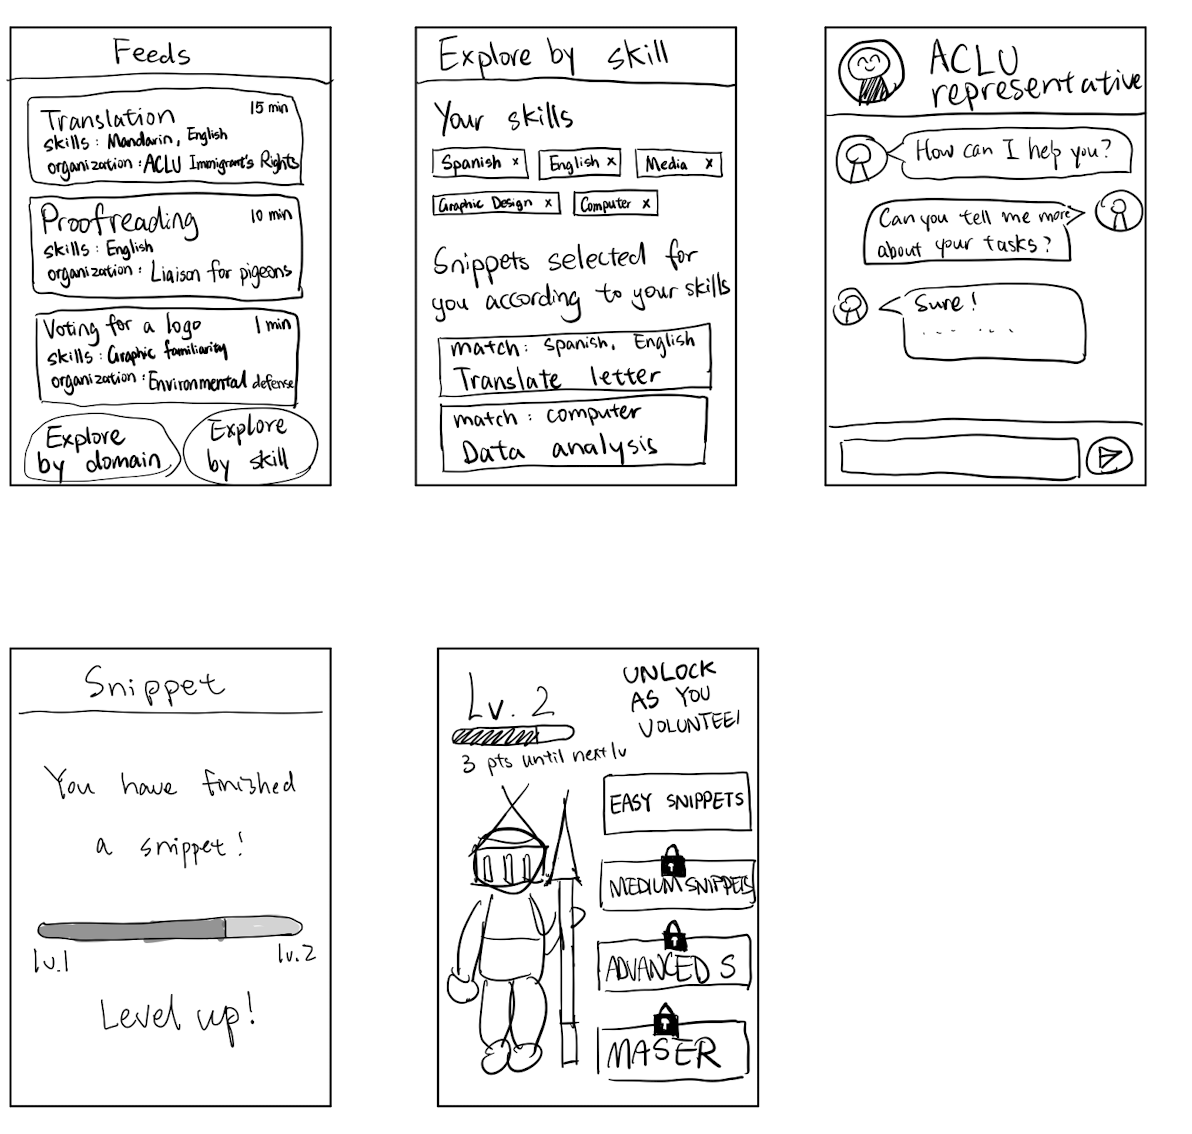 Feeds
Translation 15 min
skills: Mandarin, English
organization: ACLU Immigrant's Rights
Proofreading 10 min
skills: English
organization: Liaison for pigeons
Voting for a logo 1 min
skills: Graphic familiarity
organization: Environmental defense
Explore
by domain
Explore
by skill
Explore by skill
Your skills
Spanish x English x Media x
Graphic Design x Computer x
Snippets selected for
you according to your skills
match: Spanish, English
Translate letter
match: computer
Data analysis
ACLU
representative
How can I help you?
Can you tell me more
about your tasks?
Sure!
Snippet
You have finished
a snippet!
lv.1 lv.2
Level up!
Lv. 2
3 pts until next lv
UNLOCK
AS YOU
VOLUNTEE
EASY SNIPPETS
MEDIUM SNIPPETS
ADVANCED S
MASER